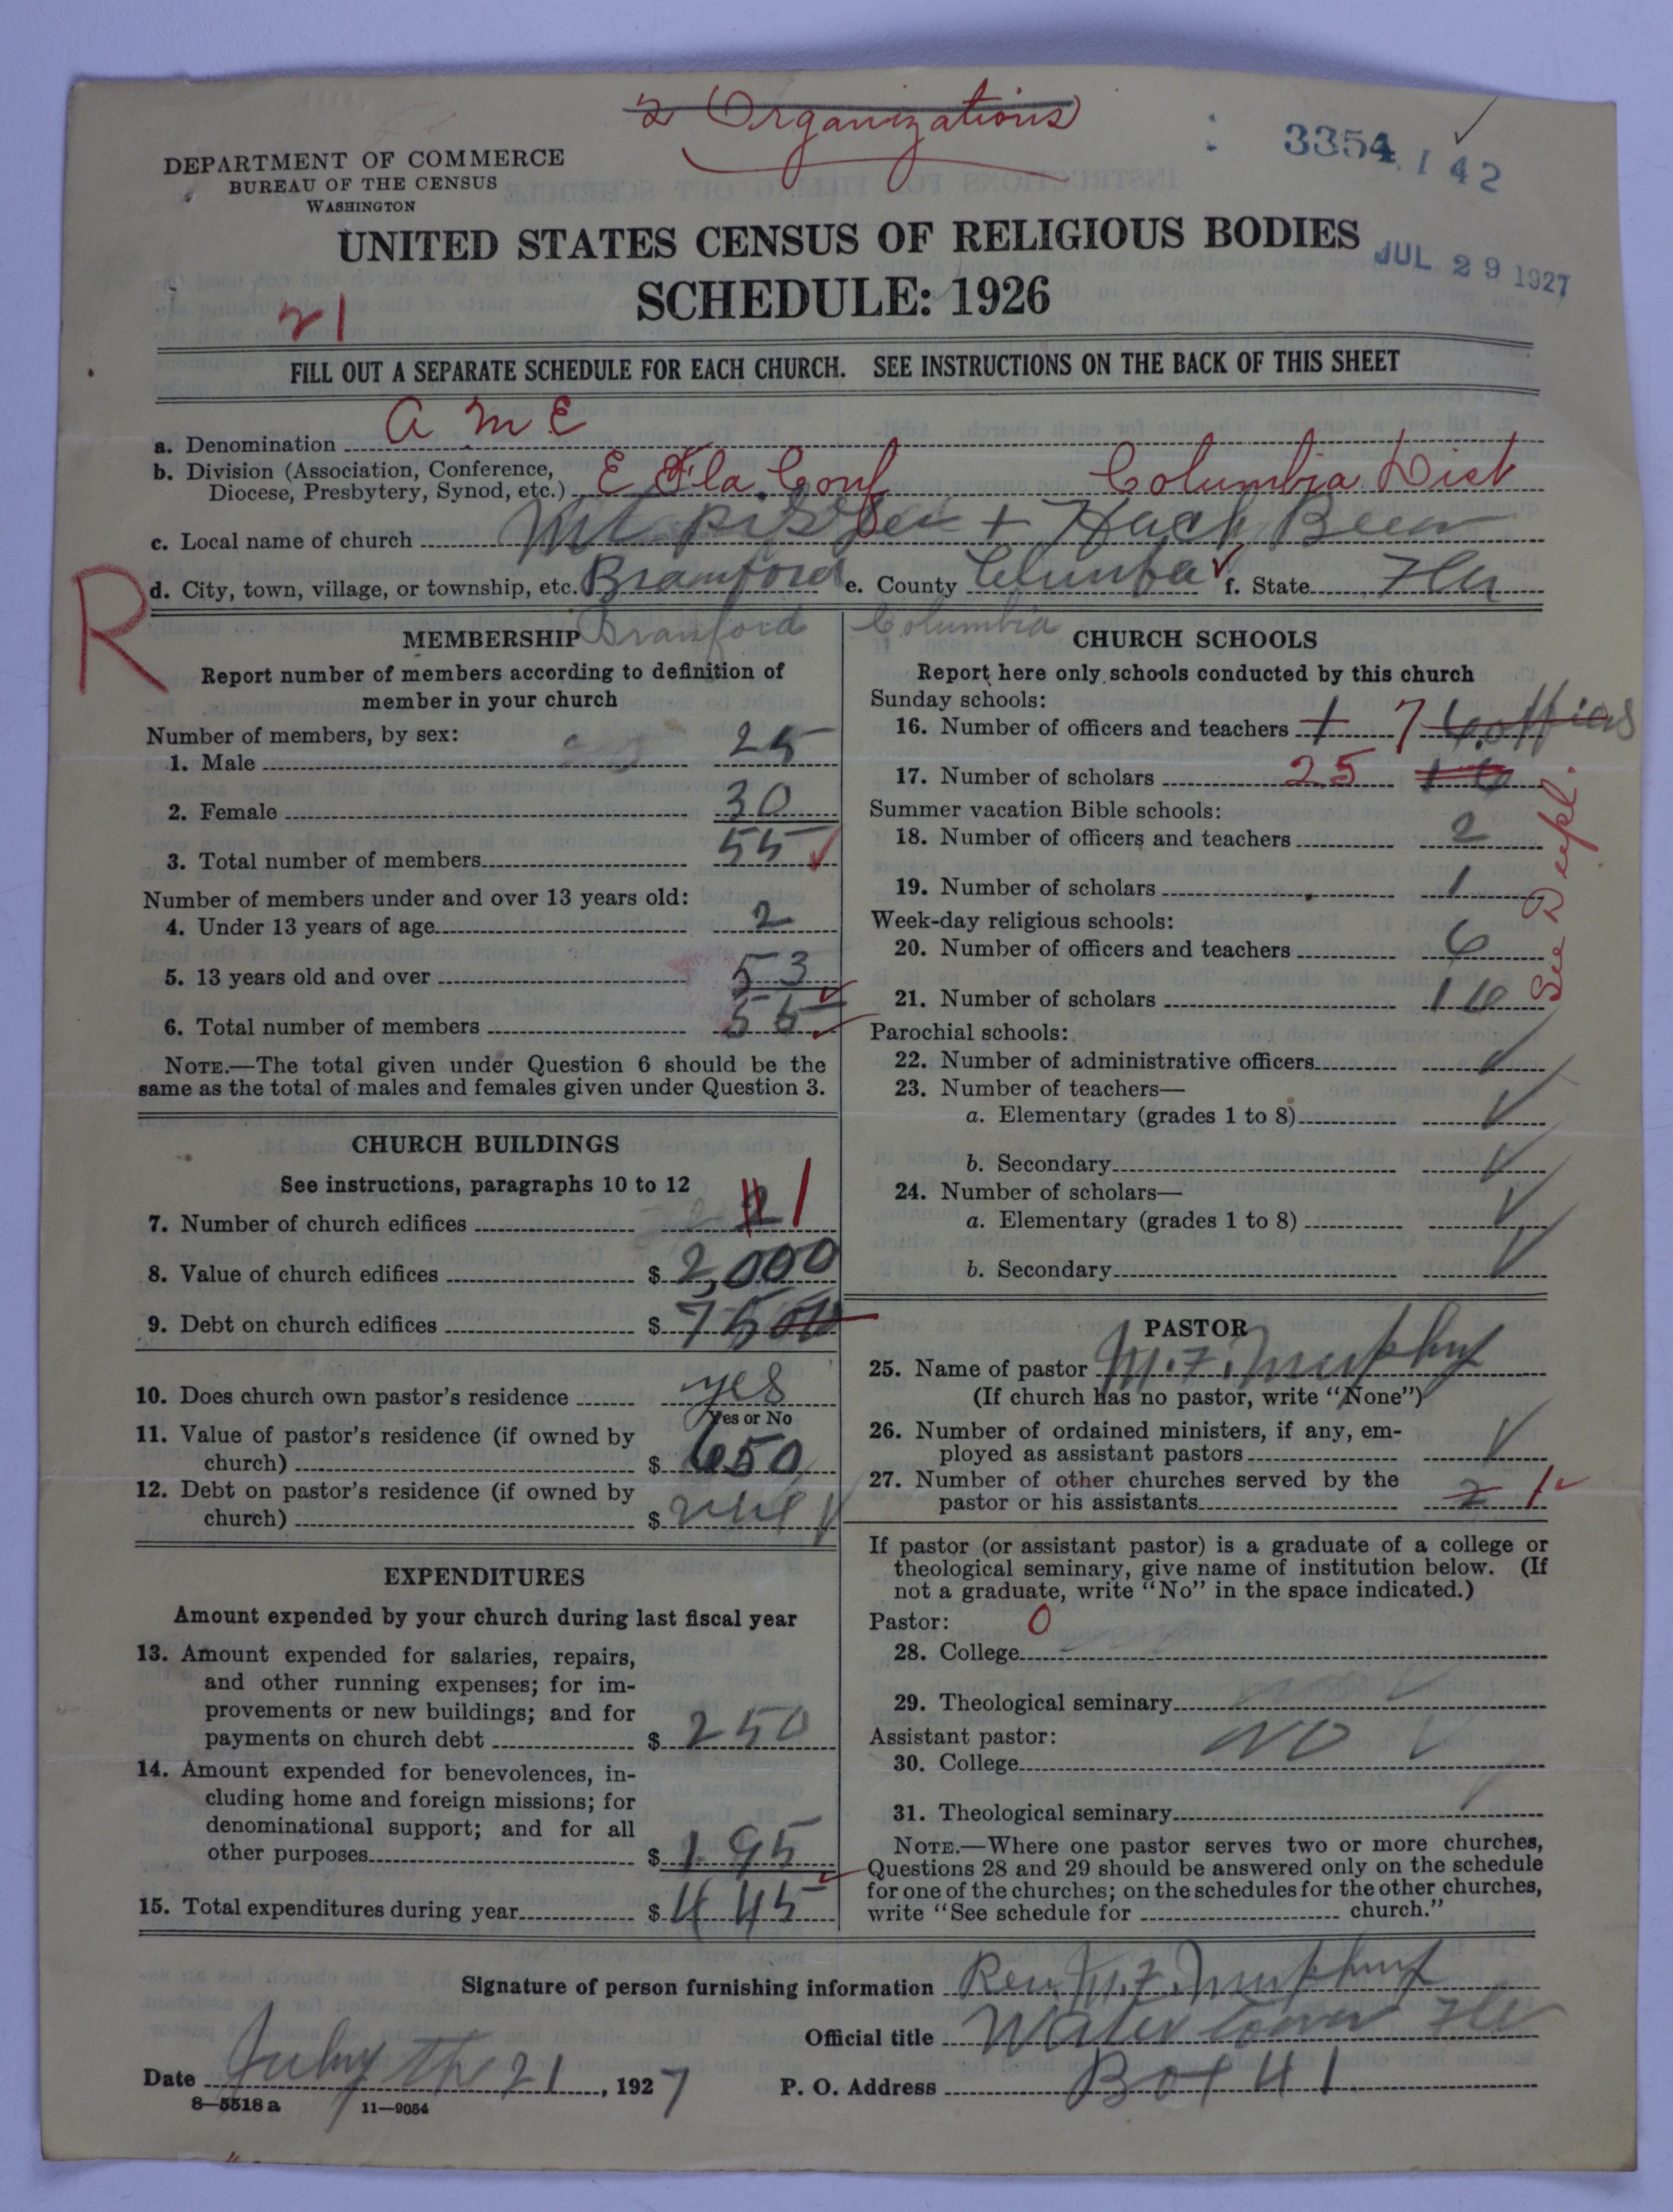 2 Organizations
3354 142
DEPARTMENT OF COMMERCE
BUREAU OF THE CENSUS
WASHINGTON
UNITED STATES CENSUS OF RELIGIOUS BODIES
JUL 29 1927
SCHEDULE: 1926
21
FILL OUT A SEPARATE SCHEDULE FOR EACH CHURCH. SEE INSTRUCTIONS ON THE BACK OF THIS SHEET
a. Denomination A M E
b. Division (Association, Conference, Diocese, Presbytery, Synod, etc.) E Fla. Conf Columbia Dist
c. Local name of church Mt +
R
d. City, town, village, or township, etc. Bramford e. County f. State Fla
Branford Columbia
MEMBERSHIP
Report number of members according to definition of
member in your church
Number of members, by sex:
1. Male 25
2. Female 30
3. Total number of members 55
Number of members under and over 13 years old:
4. Under 13 years of age 2
5. 13 years old and over 53
6. Total number of members 55
NOTE.—The total given under Question 6 should be the
same as the total of males and females given under Question 3.
CHURCH BUILDINGS
See instructions, paragraphs 10 to 12
7. Number of church edifices 2 1
8. Value of church edifices $ 2,000
9. Debt on church edifices $ 7500
10. Does church own pastor's residence yes
Yes or No
11. Value of pastor's residence (if owned by
church) $ 650
12. Debt on pastor's residence (if owned by
church) $
EXPENDITURES
Amount expended by your church during last fiscal year
13. Amount expended for salaries, repairs,
and other running expenses; for im-
provements or new buildings; and for
payments on church debt $ 250
14. Amount expended for benevolences, in-
cluding home and foreign missions; for
denominational support; and for all
other purposes $ 195
15. Total expenditures during year $ 445
CHURCH SCHOOLS
Report here only schools conducted by this church
Sunday schools:
16. Number of officers and teachers 1 7 6 officers
17. Number of scholars 25 16
Summer vacation Bible schools:
18. Number of officers and teachers 2
19. Number of scholars 1
Week-day religious schools:
20. Number of officers and teachers 6
21. Number of scholars 16
See Dupl.
Parochial schools:
22. Number of administrative officers
23. Number of teachers—
a. Elementary (grades 1 to 8)
b. Secondary
24. Number of scholars—
a. Elementary (grades 1 to 8)
b. Secondary
PASTOR
25. Name of pastor M. F. Murphy
(If church has no pastor, write "None")
26. Number of ordained ministers, if any, em-
ployed as assistant pastors
27. Number of other churches served by the
pastor or his assistants 2 1
If pastor (or assistant pastor) is a graduate of a college or
theological seminary, give name of institution below. (If
not a graduate, write "No" in the space indicated.)
Pastor: 0
28. College
29. Theological seminary
Assistant pastor: NO
30. College
31. Theological seminary
NOTE.—Where one pastor serves two or more churches,
Questions 28 and 29 should be answered only on the schedule
for one of the churches; on the schedules for the other churches,
write "See schedule for church."
Signature of person furnishing information Rev. M. F. Murphy
Official title Water Town Fla
Date July the 21, 1927 P. O. Address Box 41
8—5518 a 11—9054